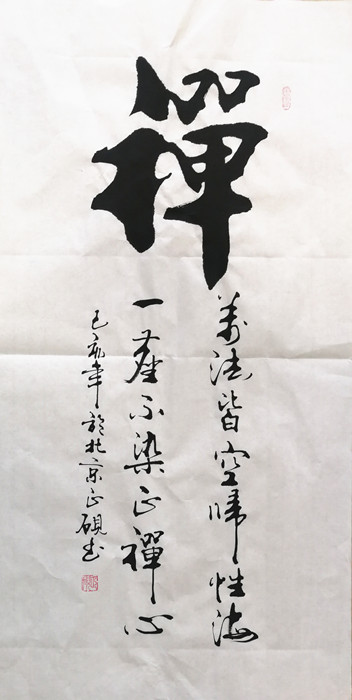 禪
萬法皆空歸性海
一塵不染正禪心
己亥年於北京正硯書